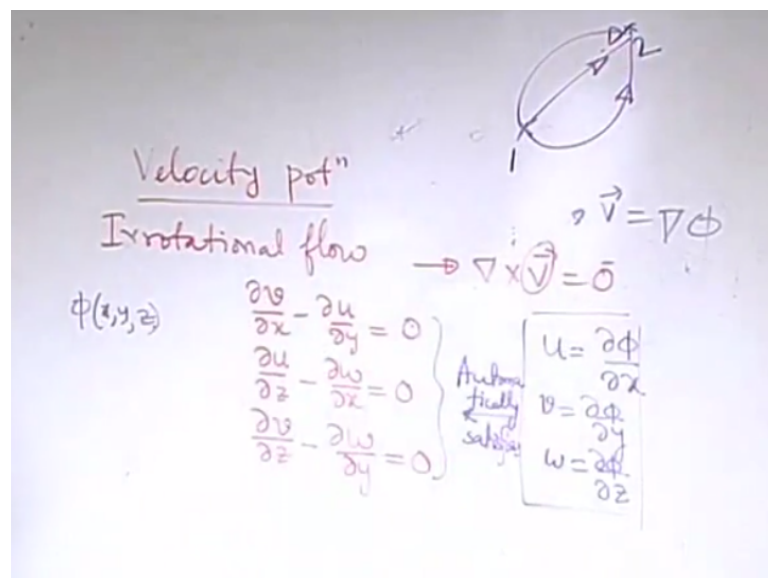 2
1
Velocity potⁿ
Irrotational flow → ∇ × V⃗ = 0̄
, V⃗ = ∇ϕ
ϕ(x,y,z)
∂v/∂x − ∂u/∂y = 0
∂u/∂z − ∂w/∂x = 0
∂v/∂z − ∂w/∂y = 0
Automa
tically
u = ∂ϕ/∂x
v = ∂ϕ/∂y
w = ∂ϕ/∂z